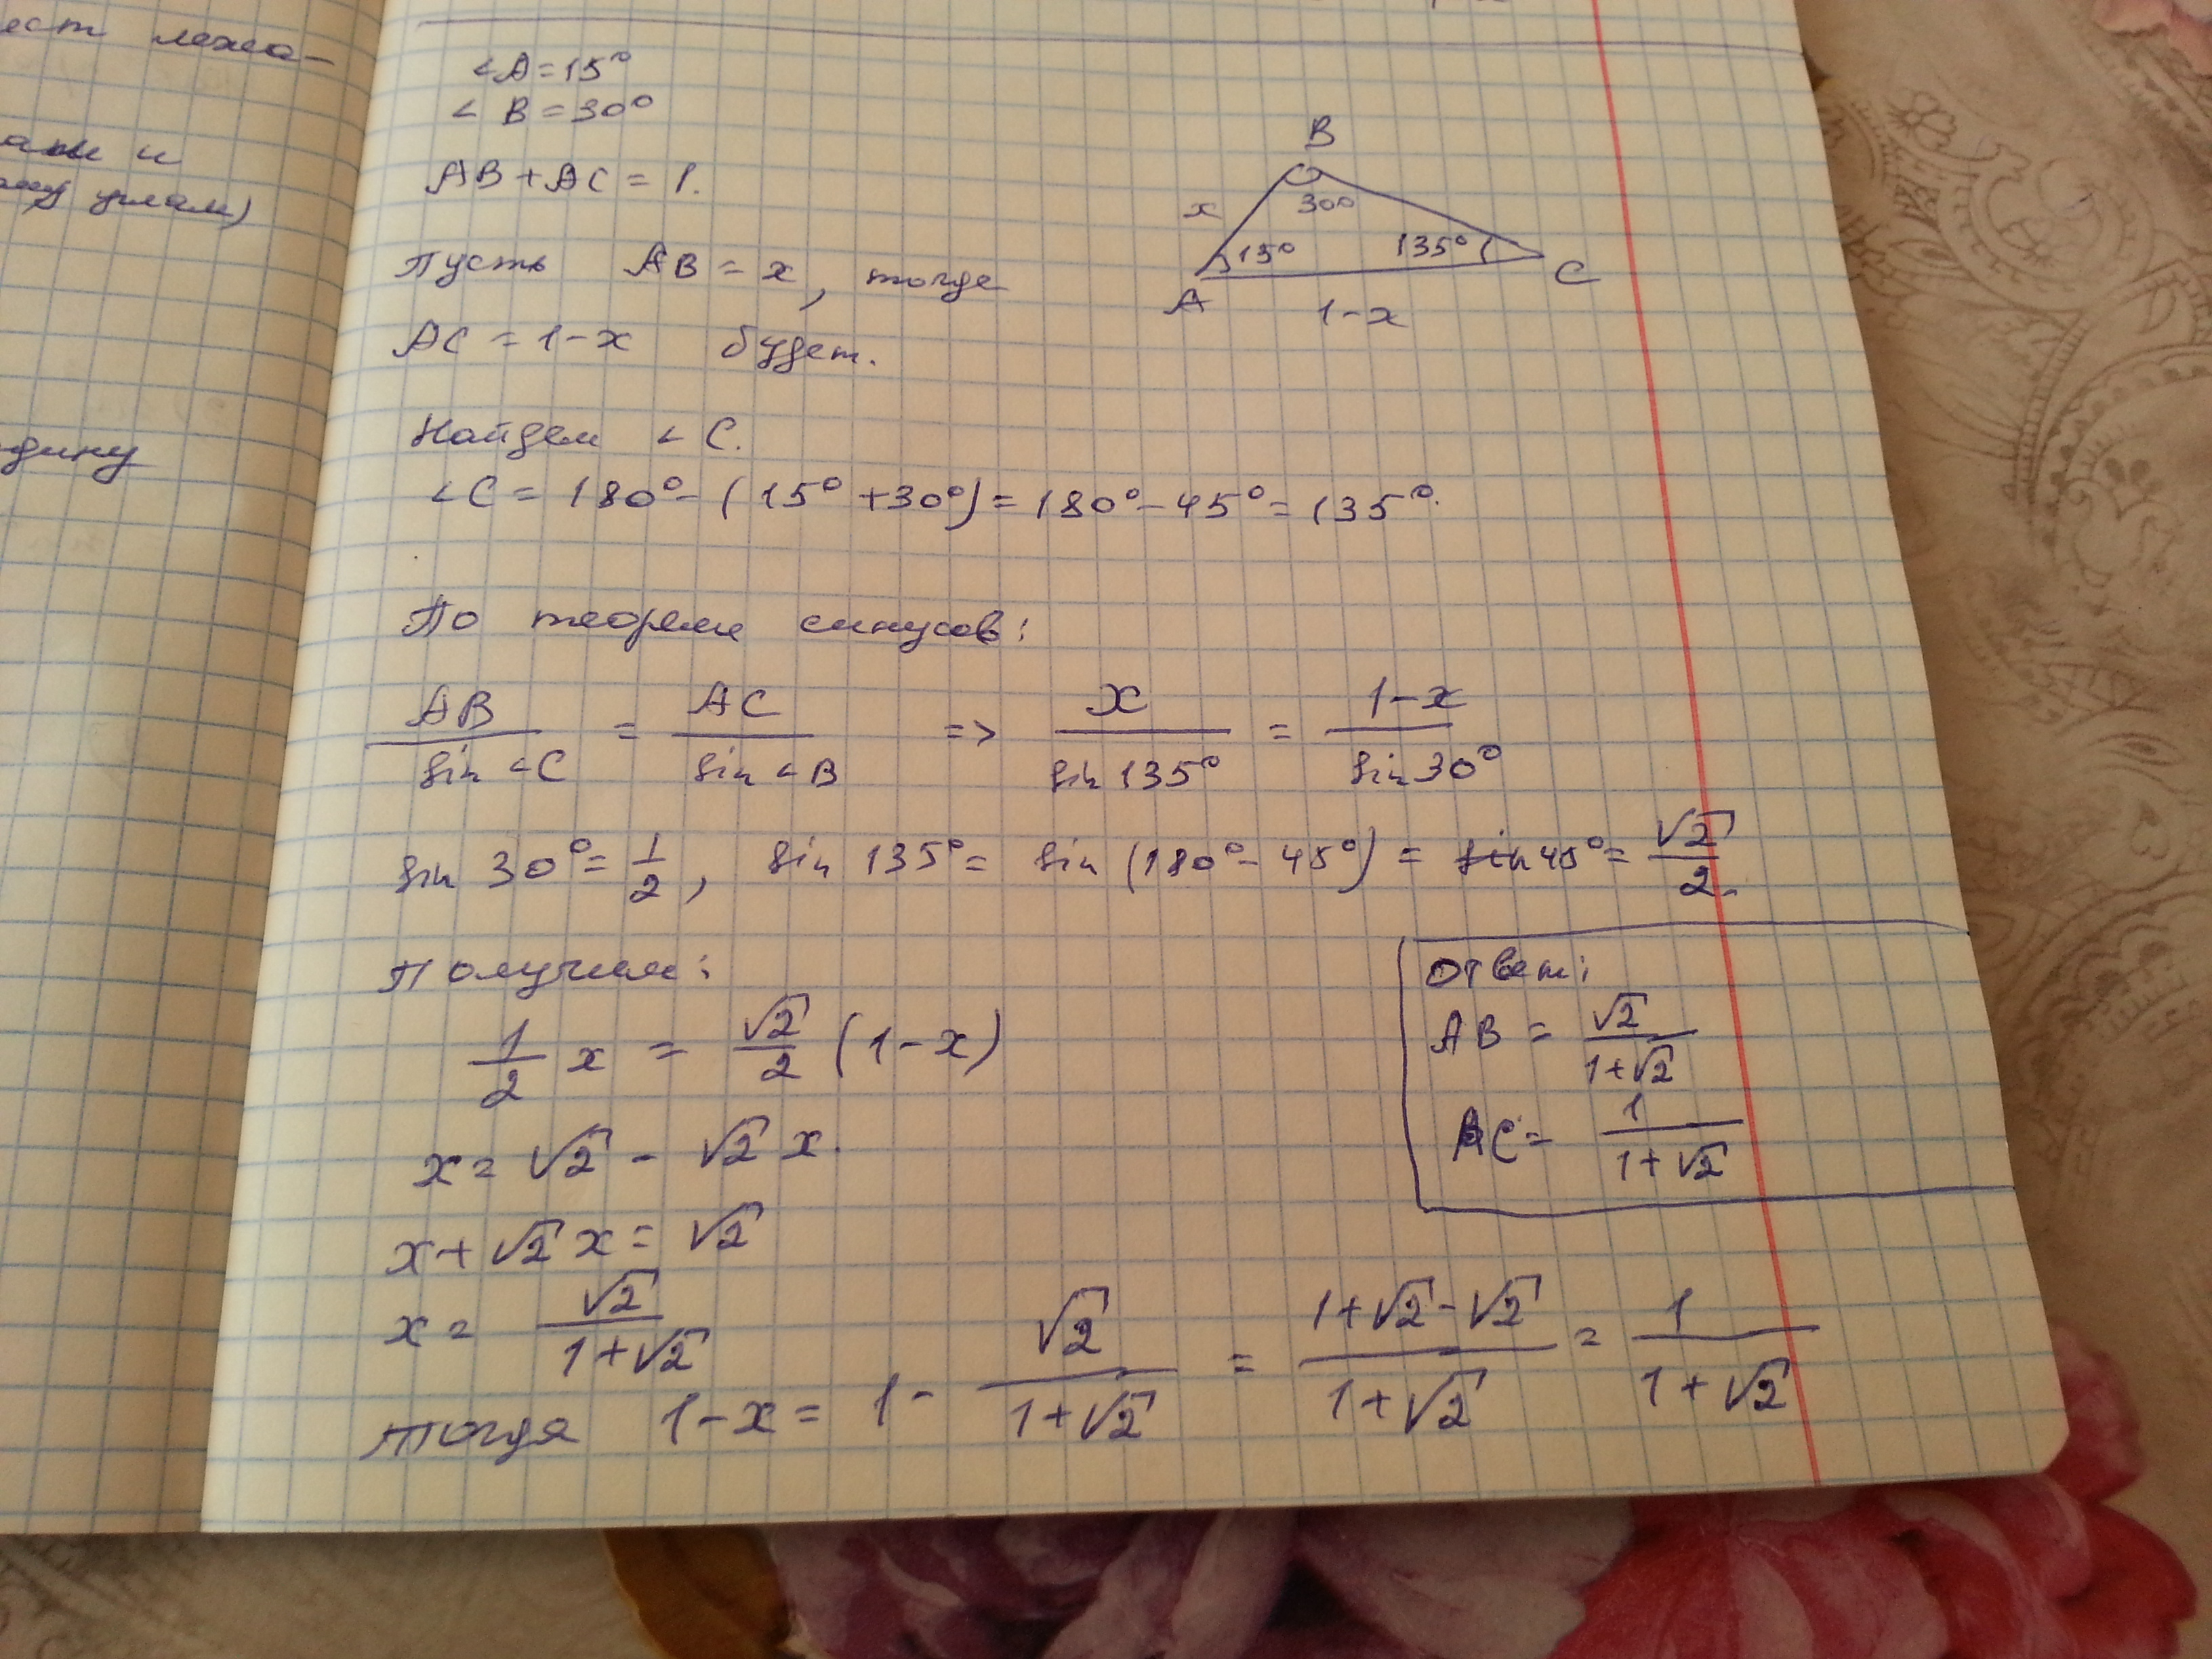 ест лежа-
и
углам)
∠A = 15°
∠B = 30°
AB + AC = 1.
B
x
30°
15°
135°
A
C
1-x
Пусть AB = x, тогда
AC = 1-x будет.
Найдем ∠C.
∠C = 180° - (15° + 30°) = 180° - 45° = 135°.
По теореме синусов:
AB/sin ∠C = AC/sin ∠B => x/sin 135° = 1-x/sin 30°
sin 30° = 1/2, sin 135° = sin (180° - 45°) = sin 45° = √2/2.
Получим:
1/2 x = √2/2 (1-x)
x = √2 - √2 x.
x + √2 x = √2
x = √2/1+√2
тогда 1-x = 1 - √2/1+√2 = 1+√2-√2/1+√2 = 1/1+√2
Ответ:
AB = √2/1+√2
AC = 1/1+√2